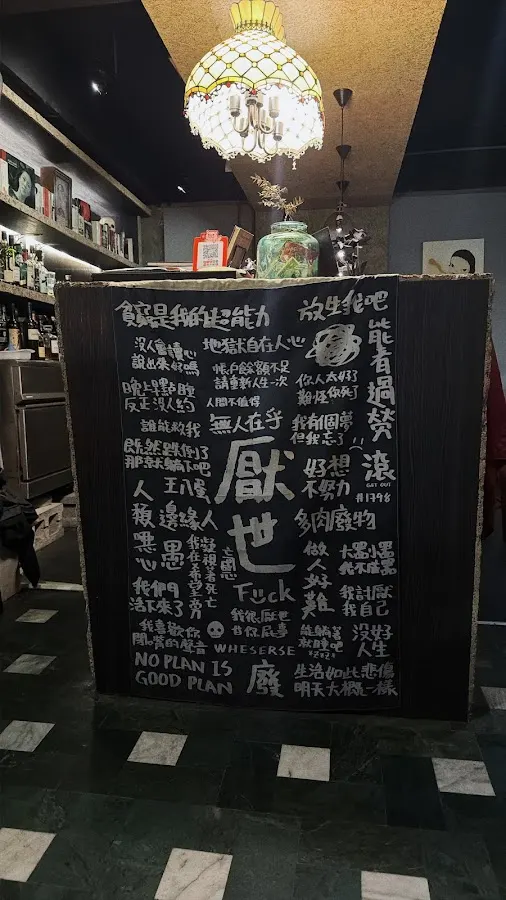 貧窮是我的超能力
放生我吧
沒人會讀心
說出來好嗎
地獄自在人心
能者過勞
晚上點睡
反正沒人約
帳戶餘額不足
請重新人生一次
人間不值得
你人太好了
難怪你死了
誰能救我
無人在乎
我有個夢
但我忘了
既然跌倒了
那就躺下吧
厭世
好想
不努力
滾
GET OUT
#1798
人類噁心
王八蛋
邊緣人
愚
多肉廢物
做人好難
大聲小聲
我不當
我們
活下來了
Fuck
我討厭
我自己
我喜歡你
閉嘴的聲音
我很厭世
甘你屁事
WHESERSE
能躺著
就睡吧
沒好
人生
NO PLAN IS
GOOD PLAN
廢
生活如此悲傷
明天大概一樣